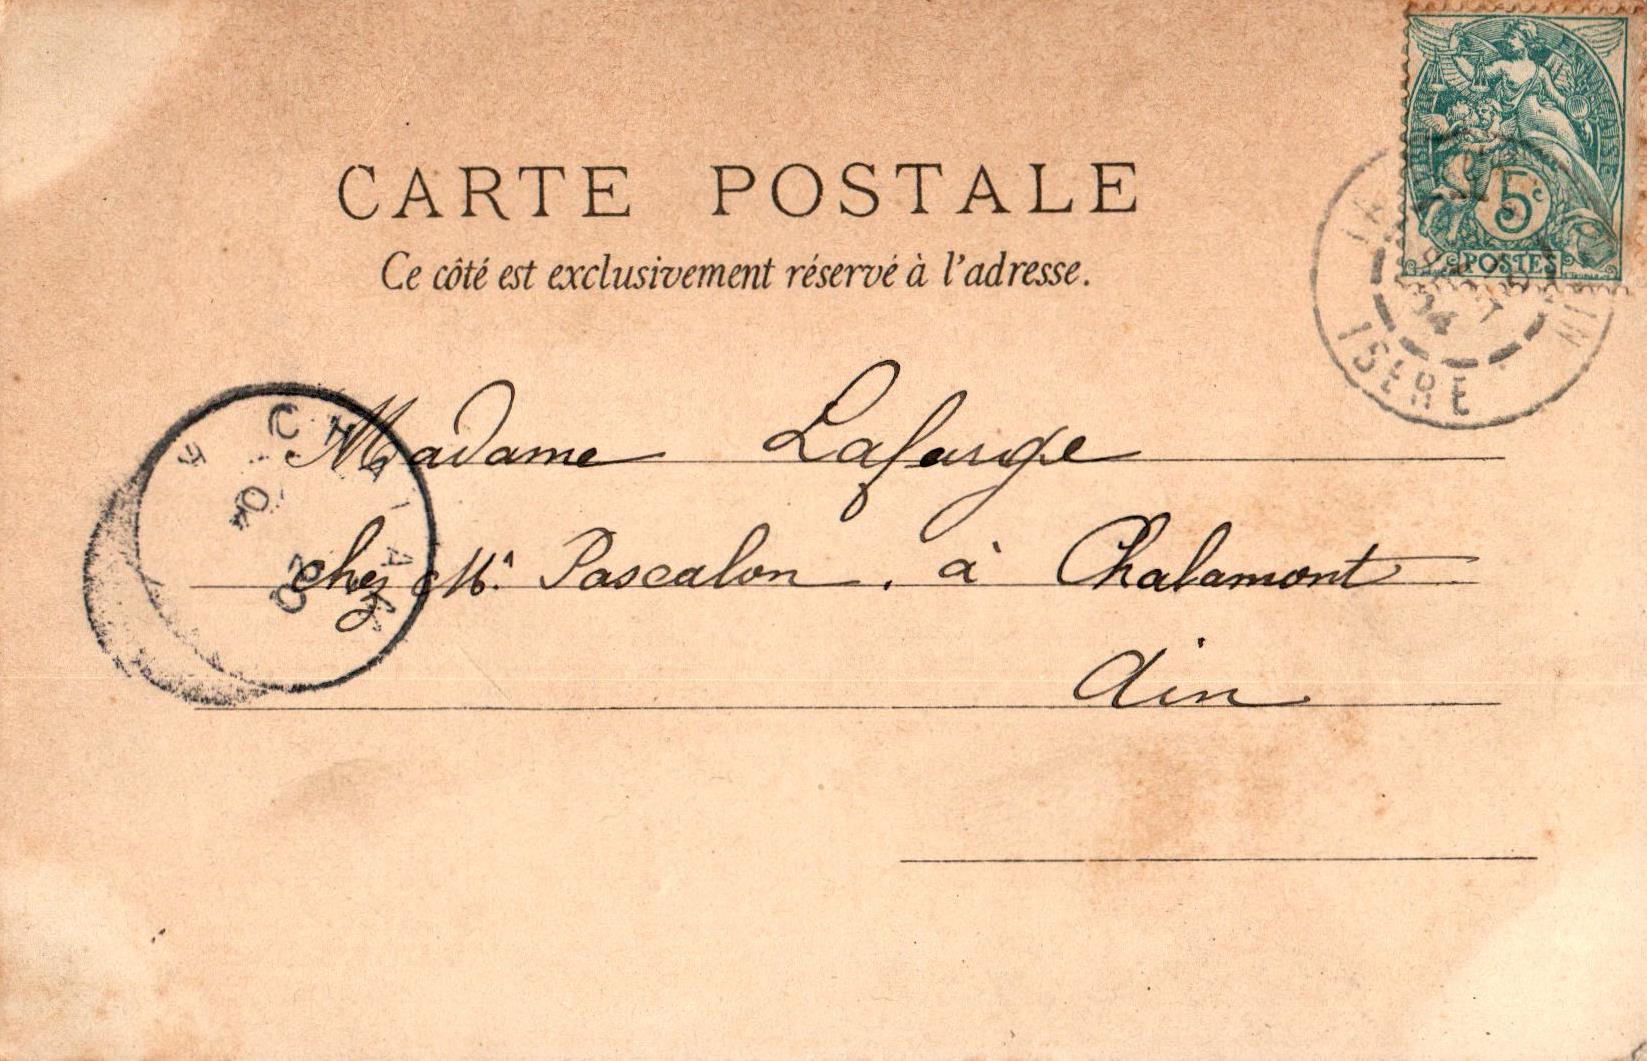 CARTE POSTALE
Ce côté est exclusivement réservé à l'adresse.
5c
POSTES
ISERE
04
Madame Lafarge
chez Mr. Pascalon. à Chalamont
Ain
20
04